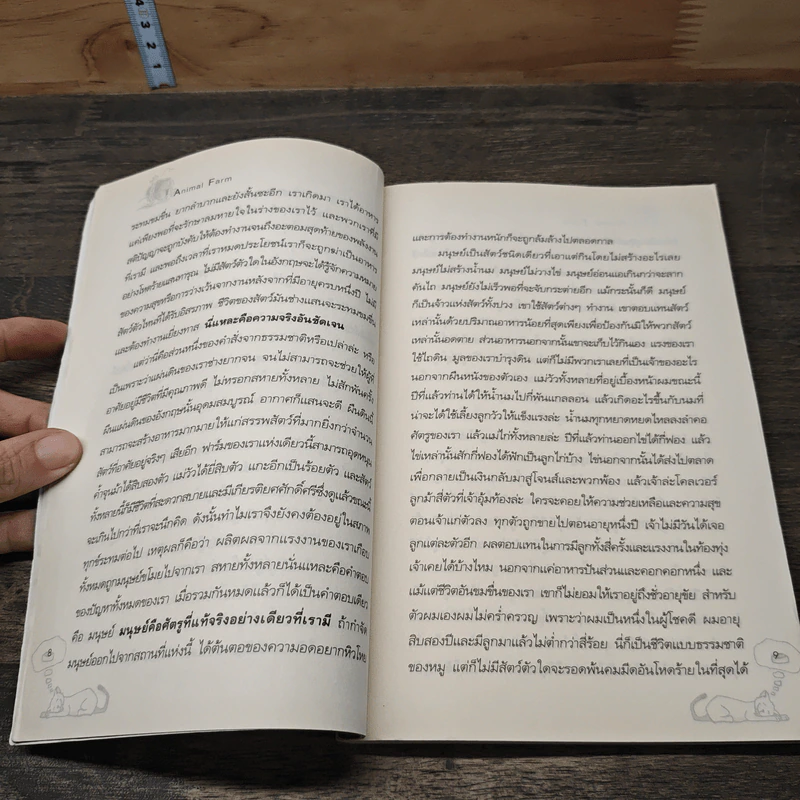 4 3 2 1
Animal Farm
ระทมขมขื่น ยากลำบากและยังสั้นซะอีก เราเกิดมา เราได้อาหาร
แค่เพียงพอที่จะรักษาลมหายใจในร่างของเราไว้ และพวกเราที่มี
สติปัญญาจะถูกบังคับให้ต้องทำงานจนถึงอะตอมสุดท้ายของพลังงาน
ที่เรามี และพอถึงเวลาที่เราหมดประโยชน์เราก็จะถูกฆ่าเป็นอาหาร
อย่างโหดร้ายแสนทารุณ ไม่มีสัตว์ตัวใดในอังกฤษจะได้รู้จักความหมาย
ของความสุขหรือการว่างเว้นจากงานหลังจากที่มีอายุครบหนึ่งปี ไม่มี
สัตว์ตัวไหนที่ได้รับอิสรภาพ ชีวิตของสัตว์มันช่างแสนจะระทมขมขื่น
และต้องทำงานเยี่ยงทาส นี่แหละคือความจริงอันชัดเจน
แต่ว่านี่คือส่วนหนึ่งของคำสั่งจากธรรมชาติหรือเปล่าล่ะ หรือ
เป็นเพราะว่าแผ่นดินของเราช่างยากจน จนไม่สามารถจะช่วยให้ผู้ที่
อาศัยอยู่มีชีวิตที่มีคุณภาพดี ไม่หรอกสหายทั้งหลาย ไม่สักพันครั้ง
ผืนแผ่นดินของอังกฤษนั้นอุดมสมบูรณ์ อากาศก็แสนจะดี ผืนดินนี้
สามารถจะสร้างอาหารมากมายให้แก่สรรพสัตว์ที่มากยิ่งกว่าจำนวน
สัตว์ที่อาศัยอยู่จริงๆ เสียอีก ฟาร์มของเราแห่งเดียวนี้สามารถอุดหนุน
ค้ำจุนม้าได้สิบสองตัว แม่วัวได้ยี่สิบตัว แกะอีกเป็นร้อยตัว และสัตว์
ทั้งหลายนี้ก็มีชีวิตที่สะดวกสบายและมีเกียรติยศศักดิ์ศรีซึ่งดูแล้วขณะนี้
จะเกินไปกว่าที่เราจะนึกคิด ดังนั้นทำไมเราจึงยังคงต้องอยู่ในสภาพ
ทุกข์ระทมต่อไป เหตุผลก็คือว่า ผลิตผลจากแรงงานของเราเกือบ
ทั้งหมดถูกมนุษย์ขโมยไปจากเรา สหายทั้งหลายนั่นแหละคือคำตอบ
ของปัญหาทั้งหมดของเรา เมื่อรวมกันหมดแล้วก็ได้เป็นคำตอบเดียว
คือ มนุษย์ มนุษย์คือศัตรูที่แท้จริงอย่างเดียวที่เรามี ถ้ากำจัด
มนุษย์ออกไปจากสถานที่แห่งนี้ ได้ต้นตอของความอดอยากหิวโหย
8
และการต้องทำงานหนักก็จะถูกล้มล้างไปตลอดกาล
มนุษย์เป็นสัตว์ชนิดเดียวที่เอาแต่กินโดยไม่สร้างอะไรเลย
มนุษย์ไม่สร้างน้ำนม มนุษย์ไม่วางไข่ มนุษย์อ่อนแอเกินกว่าจะลาก
คันไถ มนุษย์ยังไม่เร็วพอที่จะจับกระต่ายอีก แม้กระนั้นก็ดี มนุษย์
ก็เป็นจ้าวแห่งสัตว์ทั้งปวง เขาใช้สัตว์ต่างๆ ทำงาน เขาตอบแทนสัตว์
เหล่านั้นด้วยปริมาณอาหารน้อยที่สุดเพียงเพื่อป้องกันมิให้พวกสัตว์
เหล่านั้นอดตาย ส่วนอาหารนอกจากนั้นเขาจะเก็บไว้กินเอง แรงของเรา
ใช้ไถดิน มูลของเราบำรุงดิน แต่ก็ไม่มีพวกเราเลยที่เป็นเจ้าของอะไร
นอกจากผืนหนังของตัวเอง แม่วัวทั้งหลายที่อยู่เบื้องหน้าผมขณะนี้
ปีที่แล้วท่านได้ให้น้ำนมไปกี่พันแกลลอน แล้วเกิดอะไรขึ้นกับนมที่
น่าจะได้ใช้เลี้ยงลูกวัวให้แข็งแรงล่ะ น้ำนมทุกหยาดหยดไหลลงลำคอ
ศัตรูของเรา แล้วแม่ไก่ทั้งหลายล่ะ ปีที่แล้วท่านออกไข่ได้กี่ฟอง แล้ว
ไข่เหล่านั้นสักกี่ฟองได้ฟักเป็นลูกไก่บ้าง ไข่นอกจากนั้นได้ส่งไปตลาด
เพื่อกลายเป็นเงินกลับมาสู่โจนส์และพวกพ้อง แล้วเจ้าล่ะโคลเวอร์
ลูกม้าสี่ตัวที่เจ้าอุ้มท้องล่ะ ใครจะคอยให้ความช่วยเหลือและความสุข
ตอนเจ้าแก่ตัวลง ทุกตัวถูกขายไปตอนอายุหนึ่งปี เจ้าไม่มีวันได้เจอ
ลูกแต่ละตัวอีก ผลตอบแทนในการมีลูกทั้งสี่ครั้งและแรงงานในท้องทุ่ง
เจ้าเคยได้บ้างไหม นอกจากอาหารปันส่วนและคอกคอกหนึ่ง และ
แม้แต่ชีวิตอันขมขื่นของเรา เขาก็ไม่ยอมให้เราอยู่ถึงชั่วอายุขัย สำหรับ
ตัวผมเองผมไม่คร่ำครวญ เพราะว่าผมเป็นหนึ่งในผู้โชคดี ผมอายุ
สิบสองปีและมีลูกมาแล้วไม่ต่ำกว่าสี่ร้อย นี่ก็เป็นชีวิตแบบธรรมชาติ
ของหมู แต่ก็ไม่มีสัตว์ตัวใดจะรอดพ้นคมมีดอันโหดร้ายในที่สุดได้
9